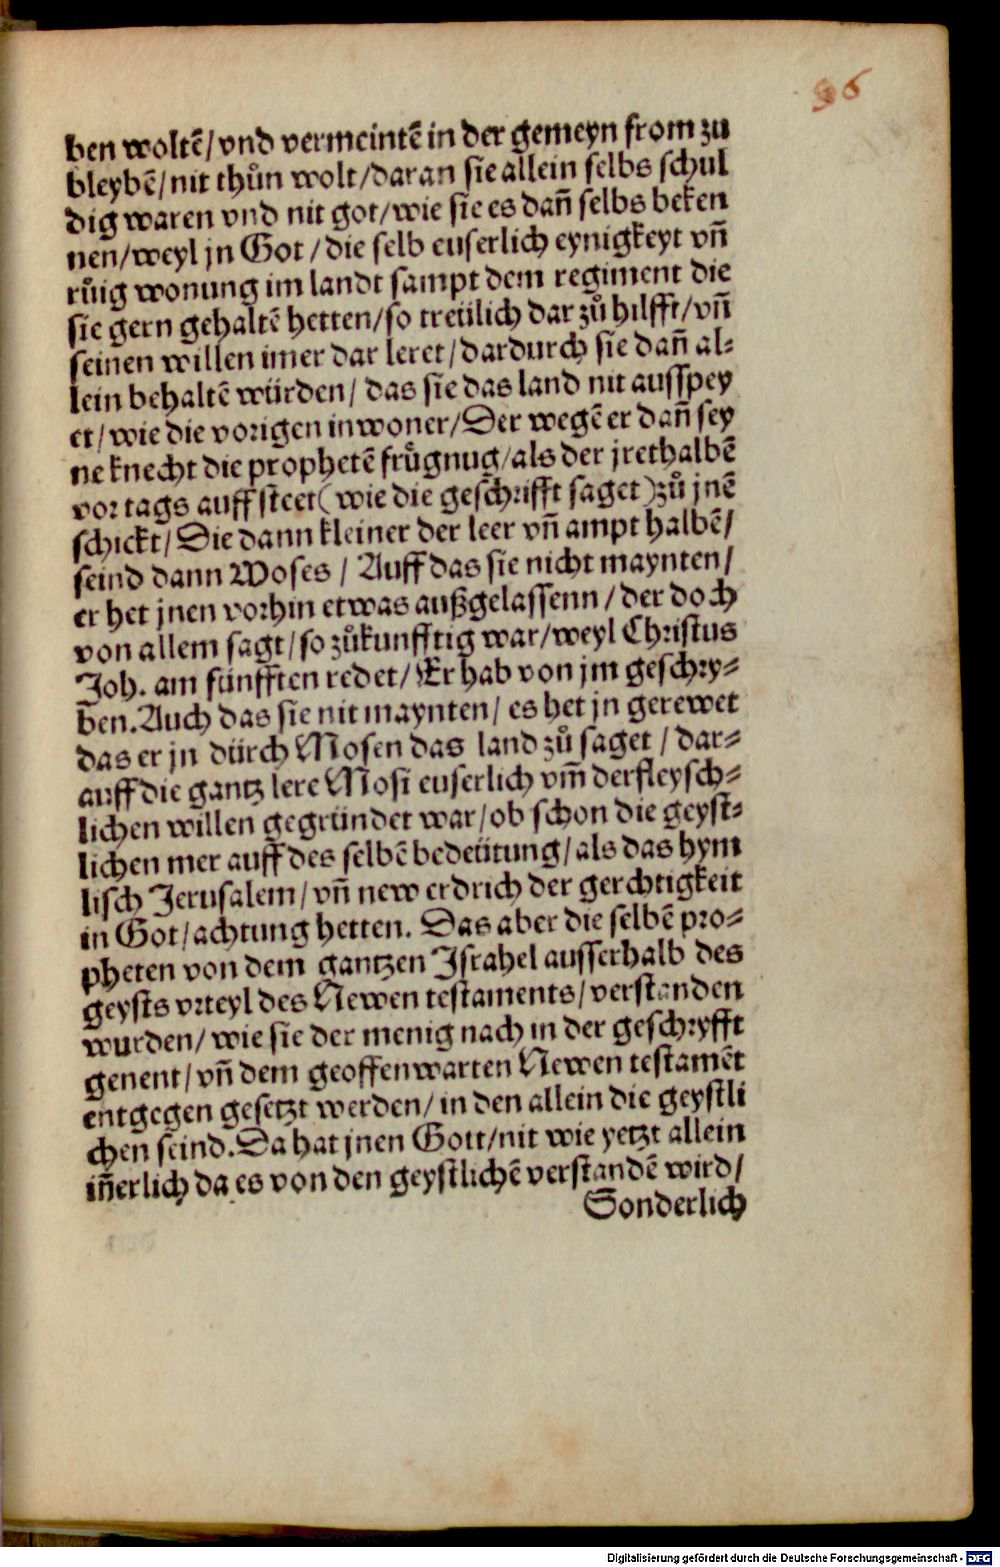 96
ben woltē/ vnd vermeintē in der gemeyn from zu
bleybē/ nit thůn wolt/ daran sie allein selbs schul
dig waren vnd nit got/ wie sie es dañ selbs beken
nen/ weyl jn Got / die selb euserlich eynigkeyt vñ
růig wonung im landt sampt dem regiment die
sie gern gehaltē hetten/ so treülich dar zů hilfft/ vñ
seinen willen imer dar leret/ dardurch sie dañ al⸗
lein behaltē würden/ das sie das land nit ausspey
et/ wie die vorigen inwoner/ Der wegē er dañ sey
ne knecht die prophetē frůgnug/ als der jrethalbē
vor tags auff steet (wie die geschrifft saget) zů jnē
schickt/ Die dann kleiner der leer vñ ampt halbē/
seind dann Moses / Auff das sie nicht maynten/
er het jnen vorhin etwas außgelassenn / der doch
von allem sagt/ so zůkunfftig war/ weyl Christus
Joh. am fünfften redet/ Er hab von jm geschry⸗
ben. Auch das sie nit maynten/ es het jn gerewet
das er jn dürch Mosen das land zů saget / dar⸗
auff die gantz lere Mosi euserlich vm̄ der fleysch⸗
lichen willen gegründet war/ ob schon die geyst⸗
lichen mer auff des selbē bedeütung/ als das hym
lisch Jerusalem/ vñ new erdrich der gerchtigkeit
in Got/ achtung hetten. Das aber die selbē pro⸗
pheten von dem gantzen Israhel ausserhalb des
geysts vrteyl des Newen testaments/ verstanden
wurden/ wie sie der menig nach in der geschryfft
genent/ vñ dem geoffenwarten Newen testamēt
entgegen gesetzt werden/ in den allein die geystli
chen seind. Da hat jnen Gott/ nit wie yetzt allein
iñerlich da es von den geystlichē verstandē wird/
Sonderlich
Digitalisierung gefördert durch die Deutsche Forschungsgemeinschaft - DFG